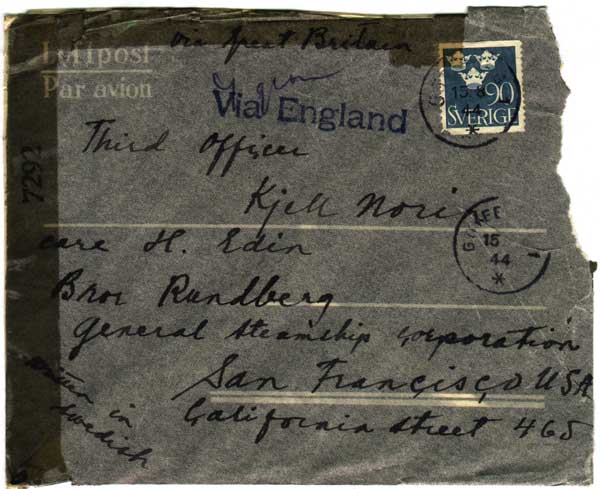 Luftpost
Par avion
via Great Britain
Via England
15 8
44
90
SVERIGE
Third Officer
Kjell Nori
care H. Edin
GÄVLE
15
44
1
Bror Rundberg
General Steamship Corporation
San Francisco USA
California street 465
written in
swedish
7292